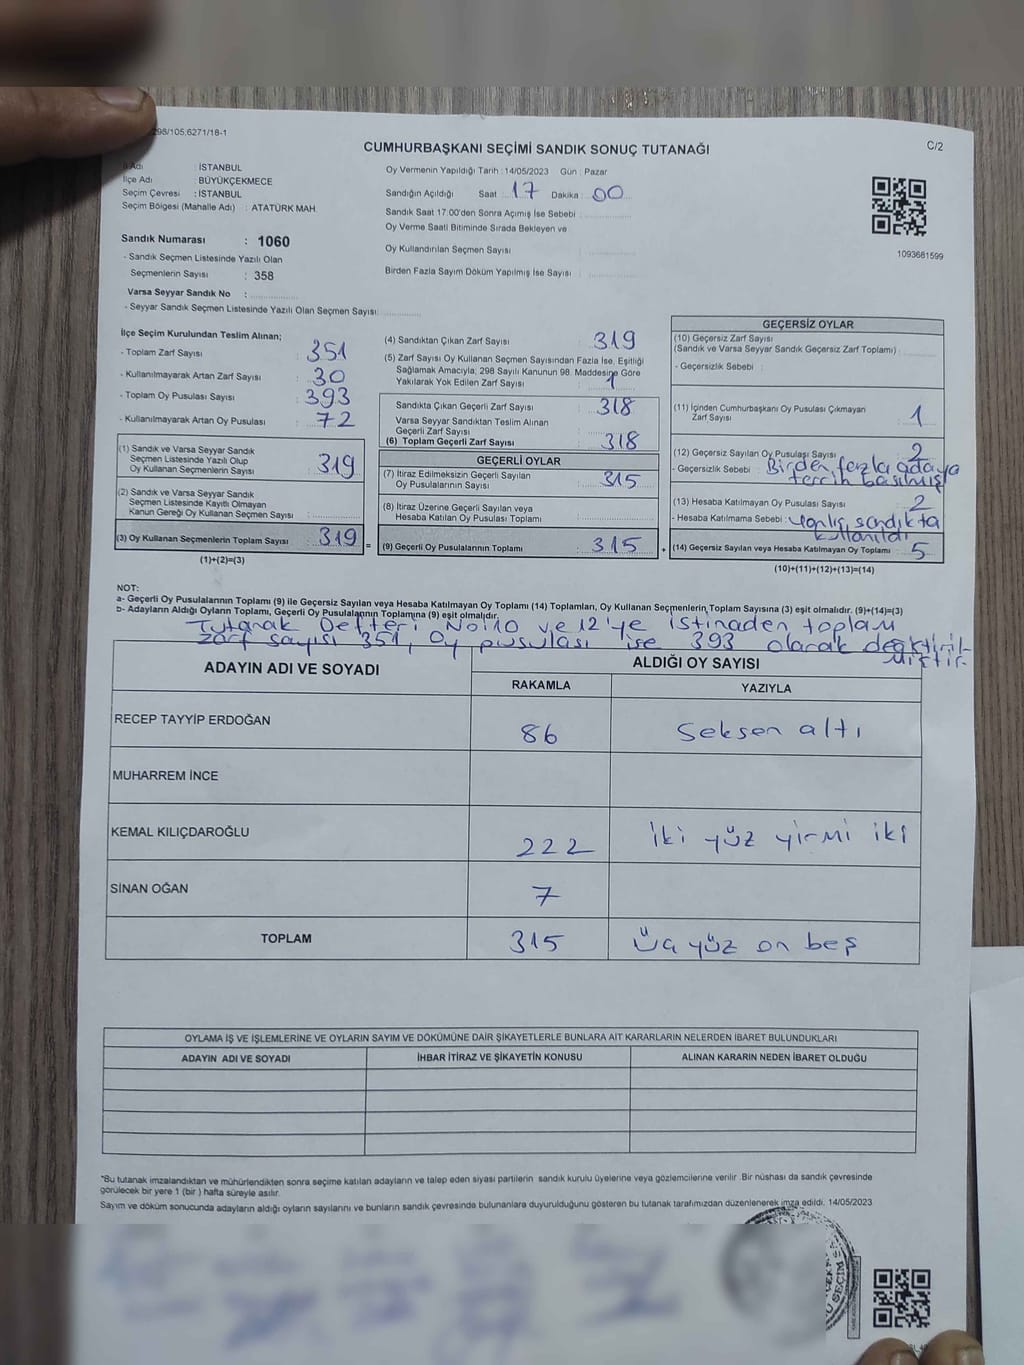 298/105,6271/18-1
C/2
CUMHURBAŞKANI SEÇİMİ SANDIK SONUÇ TUTANAĞI
İl Adı : İSTANBUL
İlçe Adı : BÜYÜKÇEKMECE
Seçim Çevresi : İSTANBUL
Seçim Bölgesi (Mahalle Adı) : ATATÜRK MAH.
Sandık Numarası : 1060
- Sandık Seçmen Listesinde Yazılı Olan
Seçmenlerin Sayısı : 358
Varsa Seyyar Sandık No :
- Seyyar Sandık Seçmen Listesinde Yazılı Olan Seçmen Sayısı:
Oy Vermenin Yapıldığı Tarih : 14/05/2023 Gün : Pazar
Sandığın Açıldığı Saat : 17 Dakika : 00
Sandık Saat 17:00'den Sonra Açımış İse Sebebi :
Oy Verme Saati Bitiminde Sırada Bekleyen ve
Oy Kullandırılan Seçmen Sayısı :
Birden Fazla Sayım Döküm Yapılmış İse Sayısı :
1093681599
İlçe Seçim Kurulundan Teslim Alınan;
- Toplam Zarf Sayısı : 351
- Kullanılmayarak Artan Zarf Sayısı : 30
- Toplam Oy Pusulası Sayısı : 393
- Kullanılmayarak Artan Oy Pusulası : 72
(1) Sandık ve Varsa Seyyar Sandık
Seçmen Listesinde Yazılı Olup
Oy Kullanan Seçmenlerin Sayısı : 319
(2) Sandık ve Varsa Seyyar Sandık
Seçmen Listesinde Kayıtlı Olmayan
Kanun Gereği Oy Kullanan Seçmen Sayısı :
(3) Oy Kullanan Seçmenlerin Toplam Sayısı : 319 =
(1)+(2)=(3)
(4) Sandıktan Çıkan Zarf Sayısı : 319
(5) Zarf Sayısı Oy Kullanan Seçmen Sayısından Fazla İse, Eşitliği
Sağlamak Amacıyla, 298 Sayılı Kanunun 98. Maddesine Göre
Yakılarak Yok Edilen Zarf Sayısı : 1
Sandıkta Çıkan Geçerli Zarf Sayısı : 318
Varsa Seyyar Sandıktan Teslim Alınan
Geçerli Zarf Sayısı :
(6) Toplam Geçerli Zarf Sayısı : 318
GEÇERLİ OYLAR
(7) İtiraz Edilmeksizin Geçerli Sayılan
Oy Pusulalarının Sayısı : 315
(8) İtiraz Üzerine Geçerli Sayılan veya
Hesaba Katılan Oy Pusulası Toplamı :
(9) Geçerli Oy Pusulalarının Toplamı : 315 +
GEÇERSİZ OYLAR
(10) Geçersiz Zarf Sayısı
(Sandık ve Varsa Seyyar Sandık Geçersiz Zarf Toplamı) :
- Geçersizlik Sebebi :
(11) İçinden Cumhurbaşkanı Oy Pusulası Çıkmayan
Zarf Sayısı : 1
(12) Geçersiz Sayılan Oy Pusulası Sayısı : 2
- Geçersizlik Sebebi : Birden fazla adaya
tercih basılmış
(13) Hesaba Katılmayan Oy Pusulası Sayısı : 2
- Hesaba Katılmama Sebebi : Yanlış sandıkta
kullanıldı
(14) Geçersiz Sayılan veya Hesaba Katılmayan Oy Toplamı : 5
(10)+(11)+(12)+(13)=(14)
NOT:
a- Geçerli Oy Pusulalarının Toplamı (9) ile Geçersiz Sayılan veya Hesaba Katılmayan Oy Toplamı (14) Toplamları, Oy Kullanan Seçmenlerin Toplam Sayısına (3) eşit olmalıdır. (9)+(14)=(3)
b- Adayların Aldığı Oyların Toplamı, Geçerli Oy Pusulalarının Toplamına (9) eşit olmalıdır.
Tutanak Defteri No:10 ve 12'ye istinaden toplam
zarf sayısı 351, Oy pusulası ise 393 olarak değiştiril-
miştir.
ADAYIN ADI VE SOYADI
ALDIĞI OY SAYISI
RAKAMLA YAZIYLA
RECEP TAYYİP ERDOĞAN 86 Seksen altı
MUHARREM İNCE
KEMAL KILIÇDAROĞLU 222 İki yüz yirmi iki
SİNAN OĞAN 7
TOPLAM 315 Üç yüz on beş
OYLAMA İŞ VE İŞLEMLERİNE VE OYLARIN SAYIM VE DÖKÜMÜNE DAİR ŞİKAYETLERLE BUNLARA AİT KARARLARIN NELERDEN İBARET BULUNDUKLARI
ADAYIN ADI VE SOYADI İHBAR İTİRAZ VE ŞİKAYETİN KONUSU ALINAN KARARIN NEDEN İBARET OLDUĞU
*Bu tutanak imzalandıktan ve mühürlendikten sonra seçime katılan adayların ve talep eden siyasi partilerin sandık kurulu üyelerine veya gözlemcilerine verilir. Bir nüshası da sandık çevresinde
görülecek bir yere 1 (bir) hafta süreyle asılır.
Sayım ve döküm sonucunda adayların aldığı oyların sayılarını ve bunların sandık çevresinde bulunanlara duyurulduğunu gösteren bu tutanak tarafımızdan düzenlenerek imza edildi. 14/05/2023